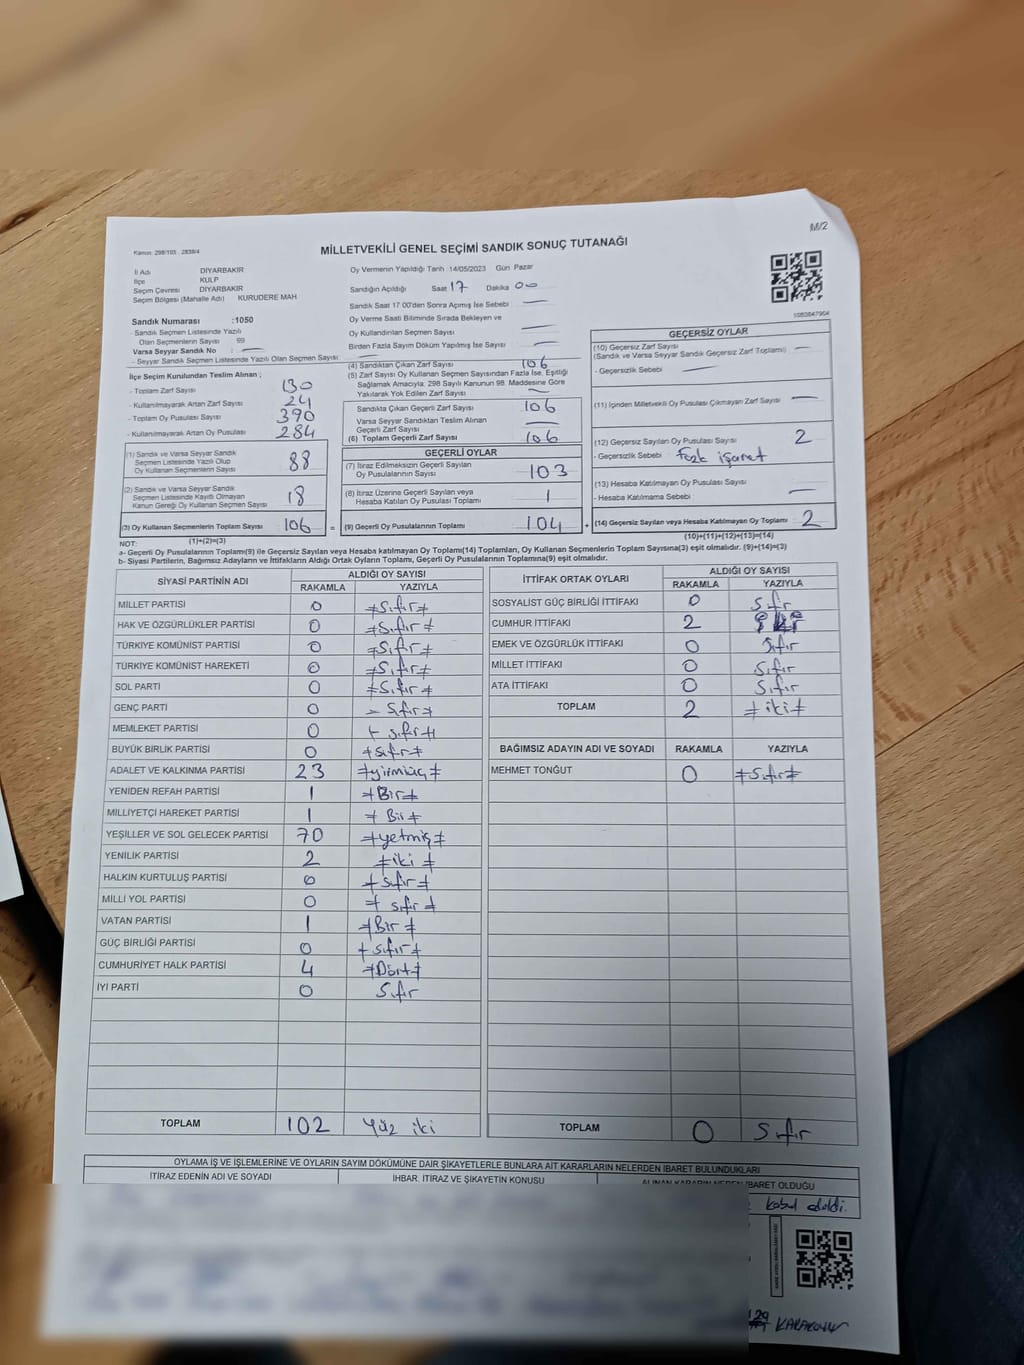 M/2
Kanun: 298/103 , 2839/4
MİLLETVEKİLİ GENEL SEÇİMİ SANDIK SONUÇ TUTANAĞI
İl Adı DİYARBAKIR
İlçe KULP
Seçim Çevresi DİYARBAKIR
Seçim Bölgesi (Mahalle Adı) KURUDERE MAH
Sandık Numarası :1050
- Sandık Seçmen Listesinde Yazılı
Olan Seçmenlerin Sayısı 99
Varsa Seyyar Sandık No : —
- Seyyar Sandık Seçmen Listesinde Yazılı Olan Seçmen Sayısı: —
Oy Vermenin Yapıldığı Tarih :14/05/2023 Gün Pazar
Sandığın Açıldığı Saat 17 Dakika 00
Sandık Saat 17.00'den Sonra Açımış İse Sebebi —
Oy Verme Saati Bitiminde Sırada Bekleyen ve
Oy Kullandırılan Seçmen Sayısı —
Birden Fazla Sayım Döküm Yapılmış İse Sayısı —
1080847904
İlçe Seçim Kurulundan Teslim Alınan ;
- Toplam Zarf Sayısı 130
- Kullanılmayarak Artan Zarf Sayısı 24
- Toplam Oy Pusulası Sayısı 390
- Kullanılmayarak Artan Oy Pusulası 284
(1) Sandık ve Varsa Seyyar Sandık
Seçmen Listesinde Yazılı Olup
Oy Kullanan Seçmenlerin Sayısı 88
(2) Sandık ve Varsa Seyyar Sandık
Seçmen Listesinde Kayıtlı Olmayan
Kanun Gereği Oy Kullanan Seçmen Sayısı 18
(3) Oy Kullanan Seçmenlerin Toplam Sayısı 106 =
(1)+(2)=(3)
(4) Sandıktan Çıkan Zarf Sayısı 106
(5) Zarf Sayısı Oy Kullanan Seçmen Sayısından Fazla İse, Eşitliği
Sağlamak Amacıyla, 298 Sayılı Kanunun 98. Maddesine Göre
Yakılarak Yok Edilen Zarf Sayısı —
Sandıkta Çıkan Geçerli Zarf Sayısı 106
Varsa Seyyar Sandıktan Teslim Alınan
Geçerli Zarf Sayısı —
(6) Toplam Geçerli Zarf Sayısı 106
GEÇERLİ OYLAR
(7) İtiraz Edilmeksizin Geçerli Sayılan
Oy Pusulalarının Sayısı 103
(8) İtiraz Üzerine Geçerli Sayılan veya
Hesaba Katılan Oy Pusulası Toplamı 1
(9) Geçerli Oy Pusulalarının Toplamı 104 +
GEÇERSİZ OYLAR
(10) Geçersiz Zarf Sayısı
(Sandık ve Varsa Seyyar Sandık Geçersiz Zarf Toplamı) —
- Geçersizlik Sebebi —
(11) İçinden Milletvekili Oy Pusulası Çıkmayan Zarf Sayısı —
(12) Geçersiz Sayılan Oy Pusulası Sayısı 2
- Geçersizlik Sebebi Fazla işaret
(13) Hesaba Katılmayan Oy Pusulası Sayısı
- Hesaba Katılmama Sebebi —
(14) Geçersiz Sayılan veya Hesaba Katılmayan Oy Toplamı 2
(10)+(11)+(12)+(13)=(14)
NOT:
a- Geçerli Oy Pusulalarının Toplamı(9) ile Geçersiz Sayılan veya Hesaba katılmayan Oy Toplamı(14) Toplamları, Oy Kullanan Seçmenlerin Toplam Sayısına(3) eşit olmalıdır. (9)+(14)=(3)
b- Siyasi Partilerin, Bağımsız Adayların ve İttifakların Aldığı Ortak Oyların Toplamı, Geçerli Oy Pusulalarının Toplamına(9) eşit olmalıdır.
SİYASİ PARTİNİN ADI ALDIĞI OY SAYISI
RAKAMLA YAZIYLA
MİLLET PARTİSİ 0 ≠Sıfır≠
HAK VE ÖZGÜRLÜKLER PARTİSİ 0 ≠Sıfır≠
TÜRKİYE KOMÜNİST PARTİSİ 0 ≠Sıfır≠
TÜRKİYE KOMÜNİST HAREKETİ 0 ≠Sıfır≠
SOL PARTİ 0 ≠Sıfır≠
GENÇ PARTİ 0 = Sıfır≠
MEMLEKET PARTİSİ 0 + sıfır≠
BÜYÜK BİRLİK PARTİSİ 0 ≠sıfır≠
ADALET VE KALKINMA PARTİSİ 23 ≠yirmiüç≠
YENİDEN REFAH PARTİSİ 1 ≠Bir≠
MİLLİYETÇİ HAREKET PARTİSİ 1 ≠ Bir≠
YEŞİLLER VE SOL GELECEK PARTİSİ 70 ≠yetmiş≠
YENİLİK PARTİSİ 2 ≠iki≠
HALKIN KURTULUŞ PARTİSİ 0 ≠sıfır≠
MİLLİ YOL PARTİSİ 0 ≠ sıfır≠
VATAN PARTİSİ 1 ≠Bir≠
GÜÇ BİRLİĞİ PARTİSİ 0 ≠sıfır≠
CUMHURİYET HALK PARTİSİ 4 ≠Dört≠
İYİ PARTİ 0 Sıfır
TOPLAM 102 Yüz iki
İTTİFAK ORTAK OYLARI ALDIĞI OY SAYISI
RAKAMLA YAZIYLA
SOSYALİST GÜÇ BİRLİĞİ İTTİFAKI 0 Sıfır
CUMHUR İTTİFAKI 2
EMEK VE ÖZGÜRLÜK İTTİFAKI 0 Sıfır
MİLLET İTTİFAKI 0 Sıfır
ATA İTTİFAKI 0 Sıfır
TOPLAM 2 ≠iki≠
BAĞIMSIZ ADAYIN ADI VE SOYADI RAKAMLA YAZIYLA
MEHMET TONĞUT 0 ≠Sıfır≠
TOPLAM 0 Sıfır
OYLAMA İŞ VE İŞLEMLERİNE VE OYLARIN SAYIM DÖKÜMÜNE DAİR ŞİKAYETLERLE BUNLARA AİT KARARLARIN NELERDEN İBARET BULUNDUKLARI
İTİRAZ EDENİN ADI VE SOYADI İHBAR, İTİRAZ VE ŞİKAYETİN KONUSU ALINAN KARARIN NEDEN İBARET OLDUĞU
kabul edildi.